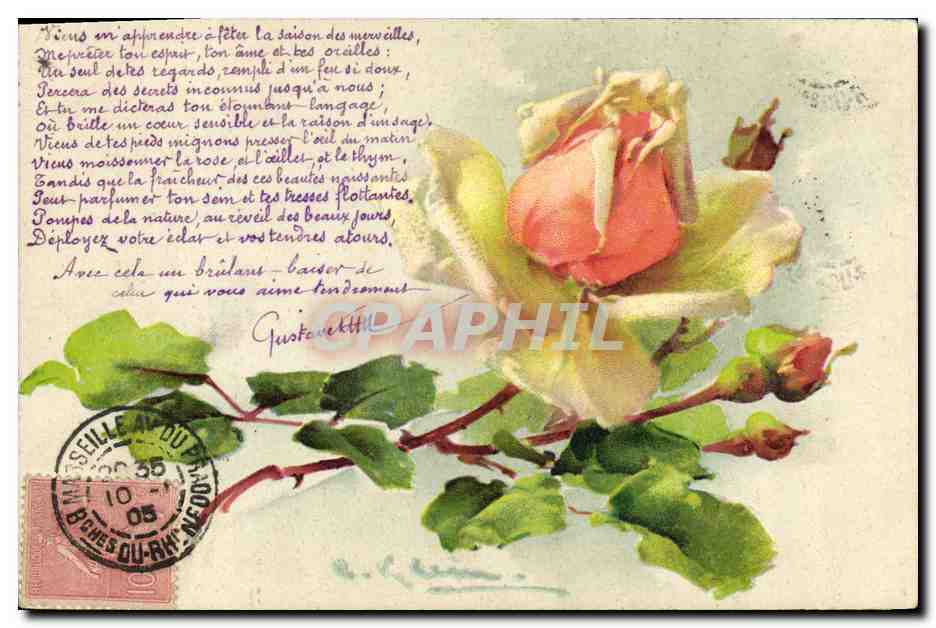 Viens m'apprendre à fêter la saison des merveilles,
Me prêter ton esprit, ton âme et tes oreilles:
Un seul de tes regards, rempli d'un feu si doux,
Percera des secrets inconnus jusqu'à nous;
Et tu me dicteras ton étonnant langage,
Où brille un cœur sensible et la raison d'un sage.
Viens de tes pieds mignons presser l'œil du matin
Viens moissonner la rose et l'œillet, et le thym,
Tandis que la fraîcheur des ces beautés naissantes
Peut parfumer ton sein et tes tresses flottantes.
Pompes de la nature, au réveil des beaux jours,
Déployez votre éclat et vos tendres atours.
Avec cela un brûlant baiser de
celui qui vous aime tendrement
Gustave
CPAPHIL
MARSEILLE AV. DU PRADO
35
10
05
BCHES DU-RHNE
10
C. Klein.